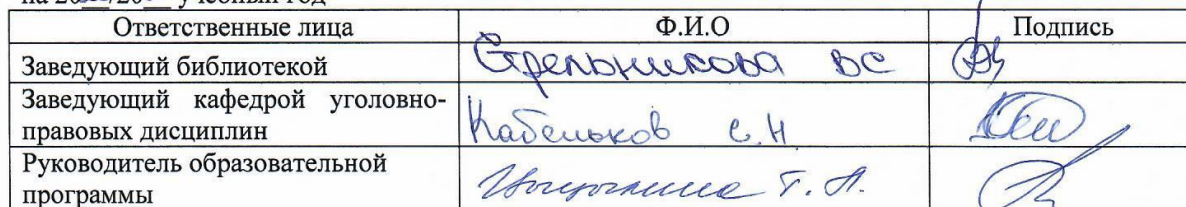 учебный год
Ответственные лица Ф.И.О Подпись
Заведующий библиотекой Стрельникова ВС
Заведующий кафедрой уголовно-
правовых дисциплин Кабельков С.Н
Руководитель образовательной
программы Т. А.